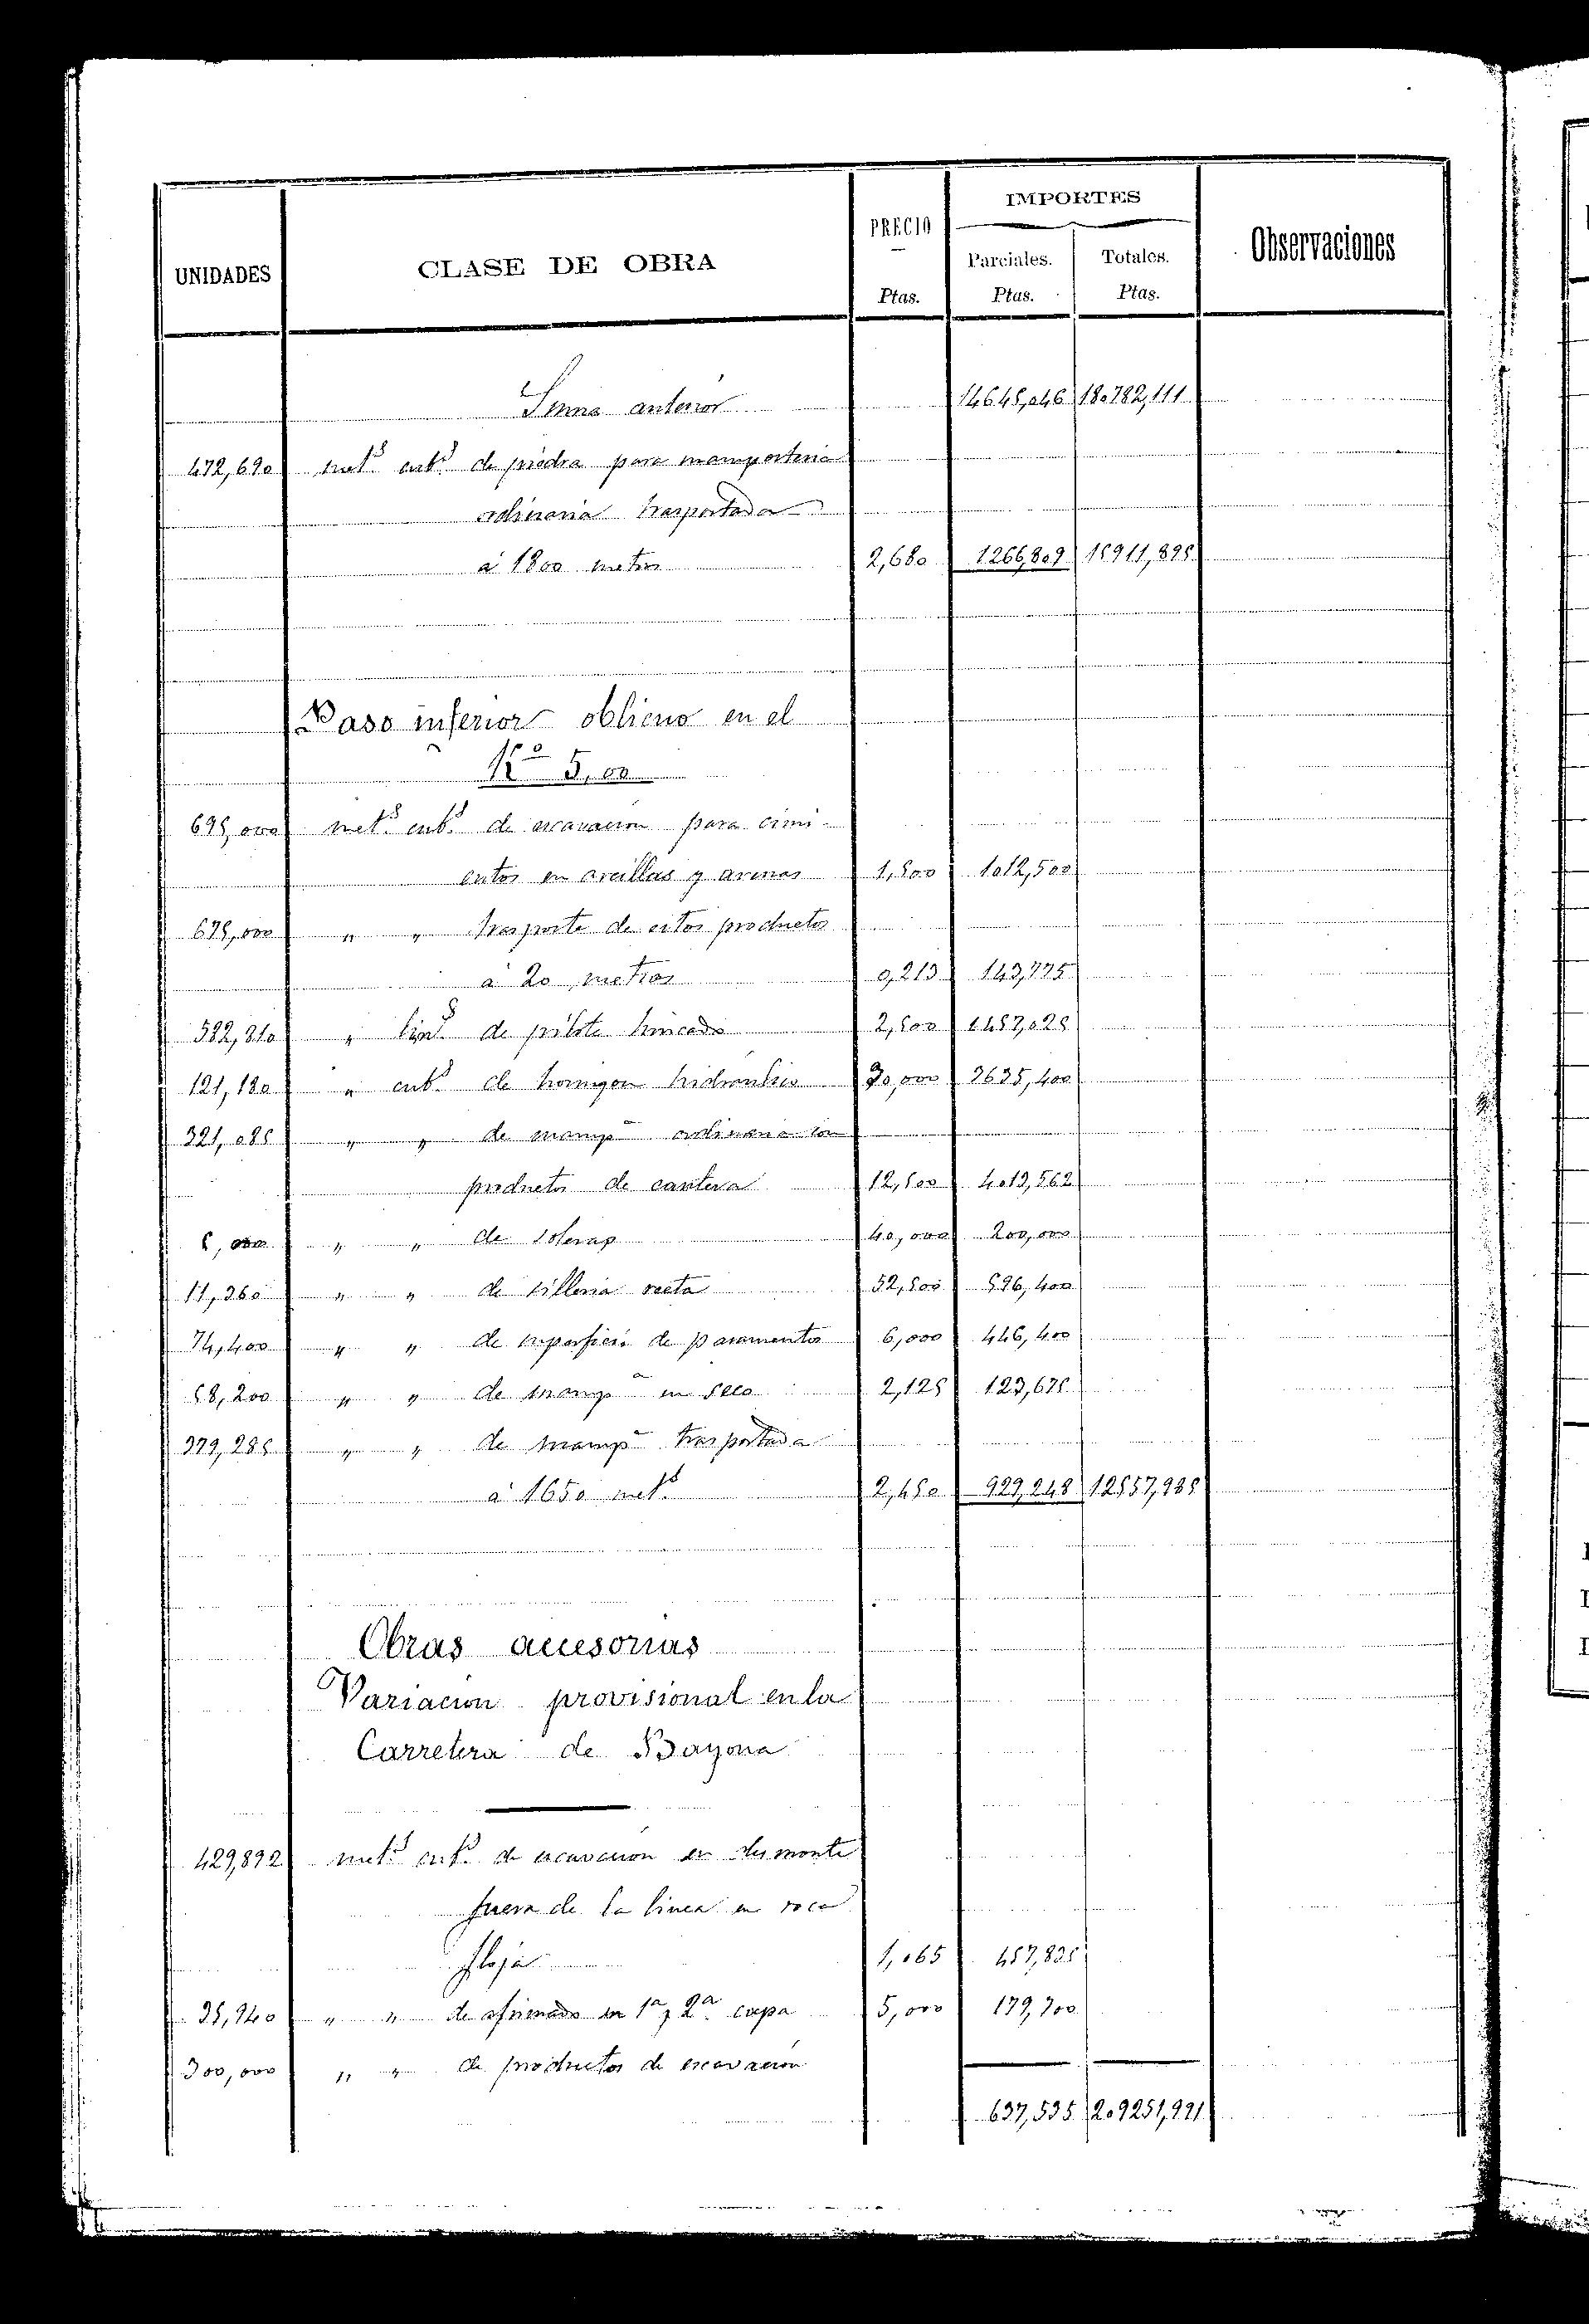 IMPORTES
UNIDADES CLASE DE OBRA PRECIO Ptas. Parciales. Ptas. Totales. Ptas. Observaciones
Suma anterior 14645,046 180782,111
472,690 met.s cub.s de piedra para mamposteria
ordinaria trasportada
á 1800 metros 2,680 1266,809 15911,895
Paso inferior oblicuo en el
Ko 5,00
695,000 met.s cub.s de escavacion para cimi-
entos en arcillas y arenas 1,500 1012,500
675,000 " " trasporte de estos productos
á 20 metros 0,213 143,775
582,810 " lin.s de pilote hincado 2,500 1457,025
121,180 " cub.s de hormigon hidraulico 30,000 3635,400
321,085 " " de mampa ordinaria con
productos de cantera 12,500 4013,562
5,000 " " de solerap 40,000 200,000
11,360 " " de silleria recta 52,500 596,400
74,400 " " de superficie de paramentos 6,000 446,400
58,200 " " de mampa en seco 2,125 123,675
379,285 " " de mampa trasportada
á 1650 met.s 2,450 929,248 12557,985
Obras accesorias
Variacion provisional en la
Carretera de Bayona
429,892 met.s cub.s de escavacion en desmonte
fuera de la linea en roca
floja 1,065 457,835
35,940 " " de afirmado en 1a y 2a capa 5,000 179,700
300,000 " " de productos de escavacion
637,535 209251,991